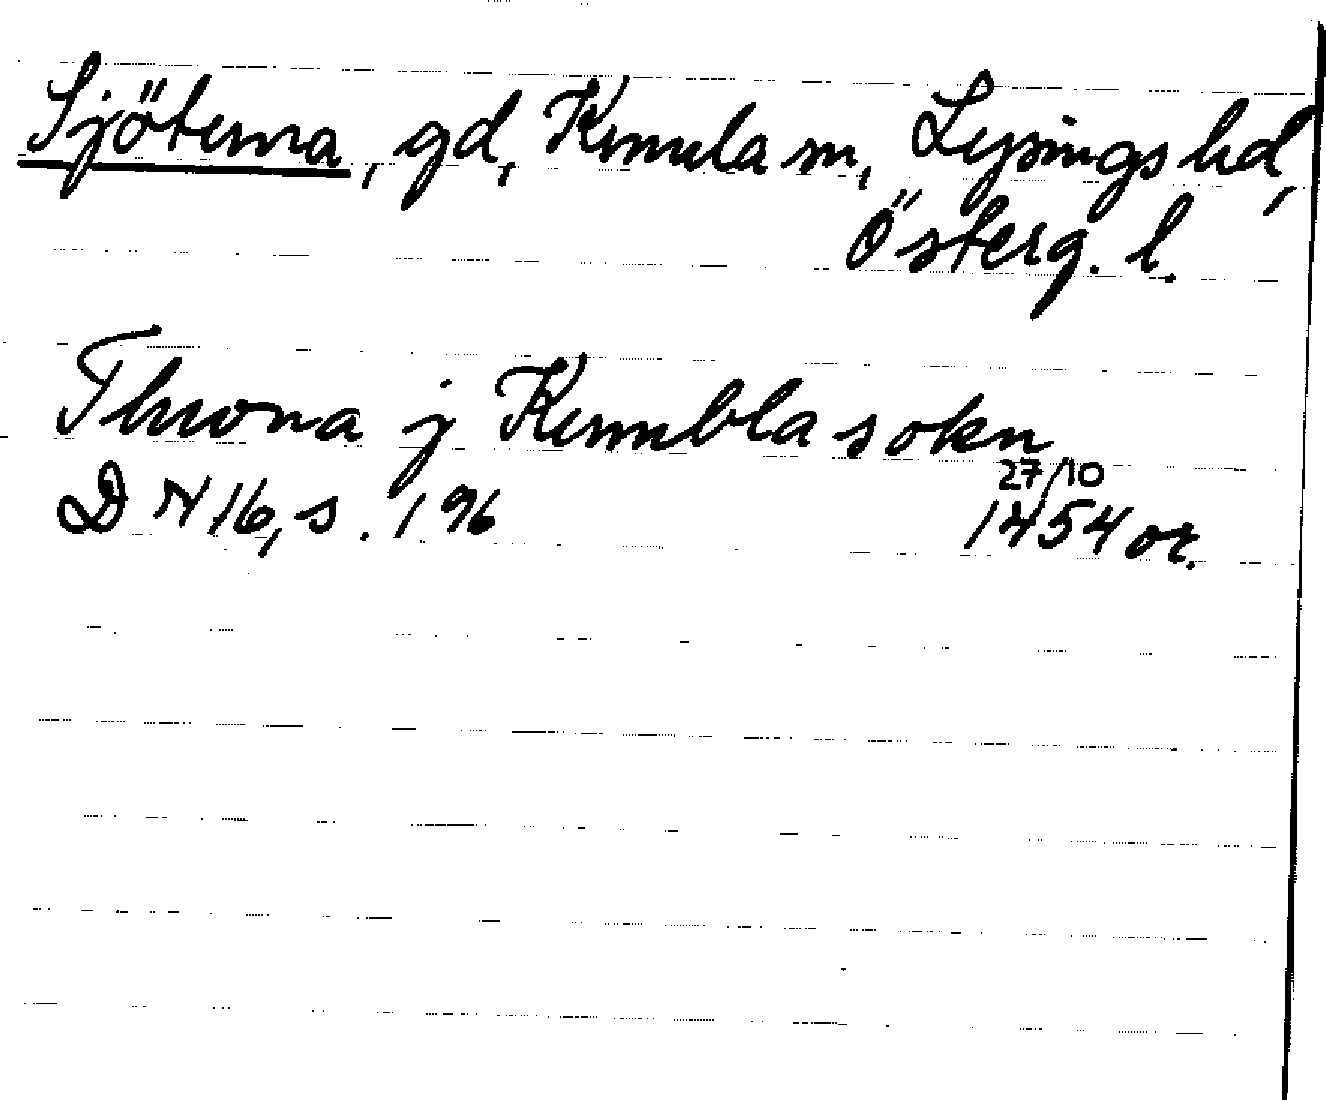 Sjötuna, gd, Kumla sn, Lysings hd,
Österg. l.
Thwna j Kumbla sokn
27/10
D N 16, s. 196 1454 or.